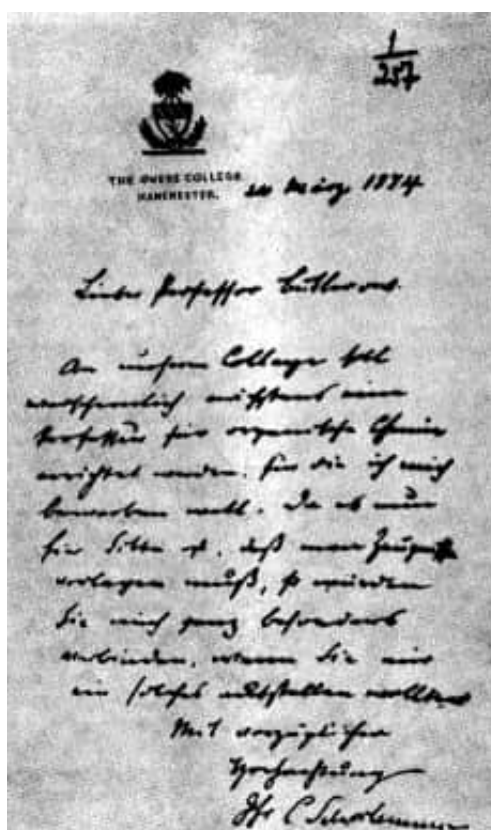 1
257
THE OWENS COLLEGE
MANCHESTER.
24 März 1874
Lieber Professor Butlerow.
An unserm College soll
wahrscheinlich nächstens eine
Professur für organische Chemie
errichtet werden, für die ich mich
bewerben will. Da es nun
hier Sitte ist, daß man Zeugnisse
vorlegen muß, so würden
Sie mich ganz besonders
verbinden, wenn Sie mir
ein solches ausstellen wollten
Mit vorzüglicher
Hochachtung
Ihr C Schorlemmer